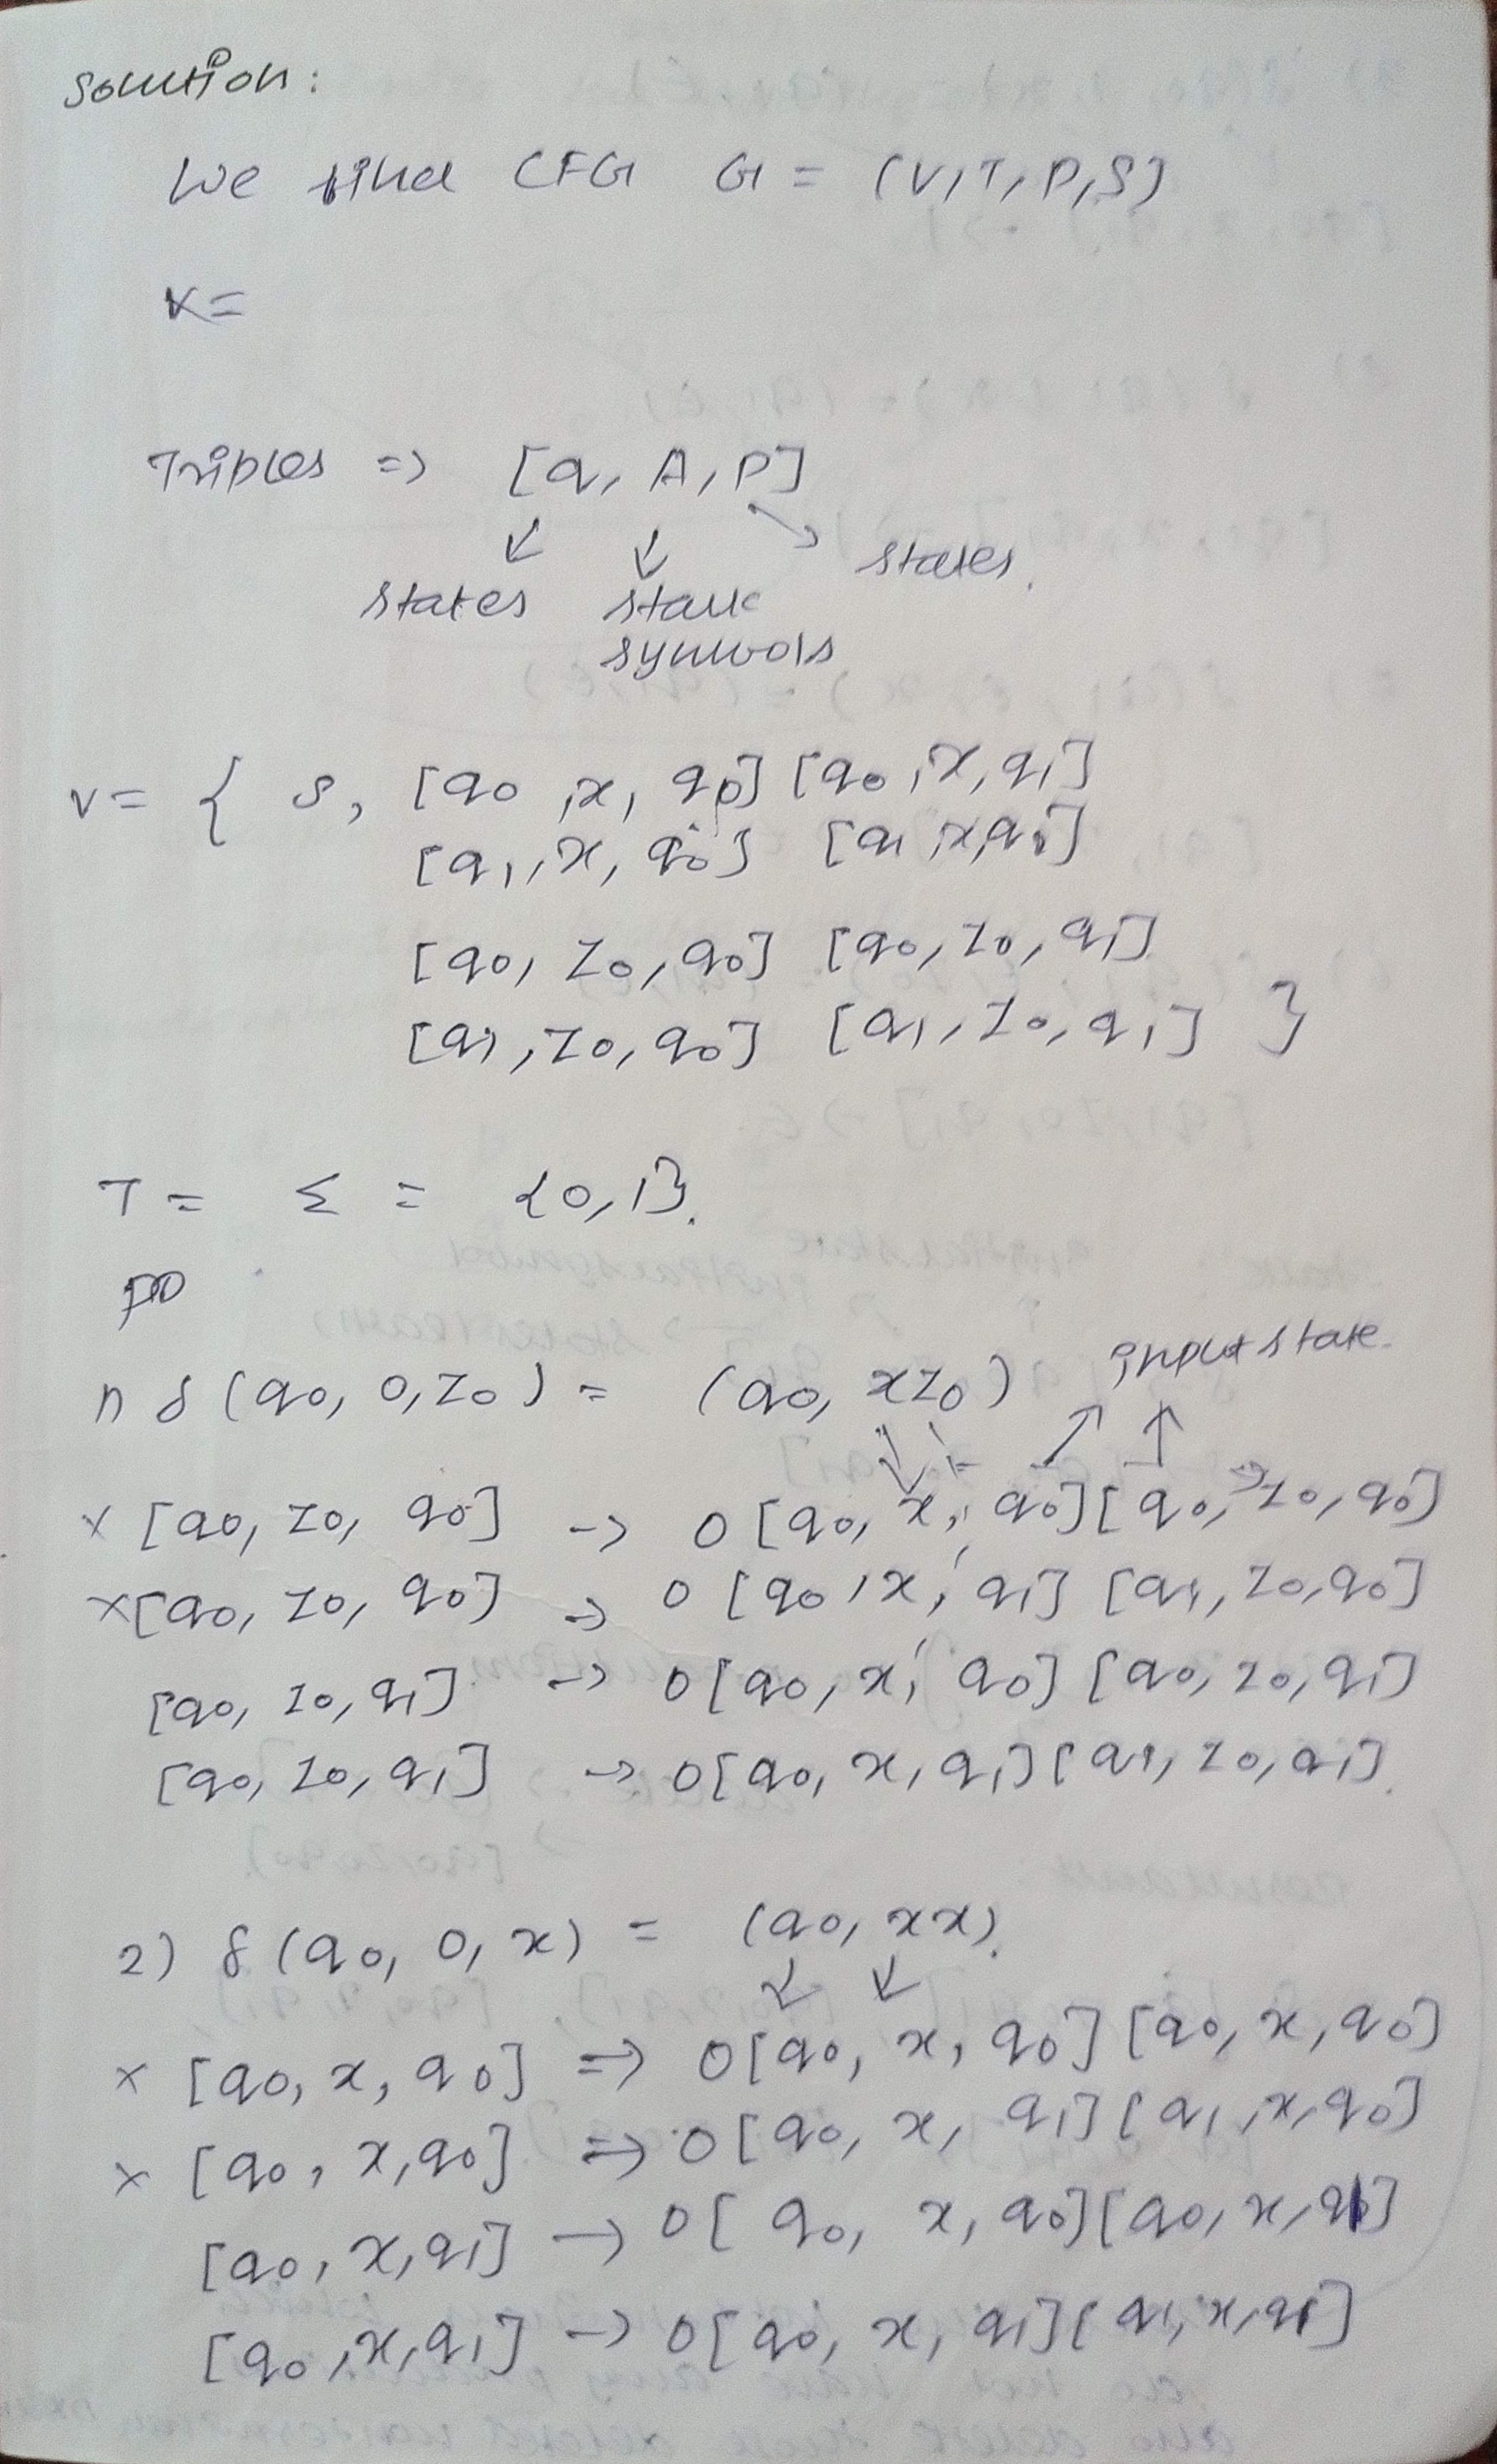 Solution:
We find CFG G = (V,T,P,S)
V=
Triples => [q, A, P]
↙ ↓ ↘
states.
states stack
symbols
V = { S, [q0, x, q0] [q0, x, q1]
[q1, x, q0] [q1, x, q1]
[q0, z0, q0] [q0, z0, q1]
[q1, z0, q0] [q1, z0, q1] }
T = Σ = {0,1}.
1) δ(q0, 0, z0) = (q0, xz0) input state.
x [q0, z0, q0] -> 0 [q0, x, q0] [q0, z0, q0]
x [q0, z0, q0] -> 0 [q0, x, q1] [q1, z0, q0]
[q0, z0, q1] -> 0 [q0, x, q0] [q0, z0, q1]
[q0, z0, q1] -> 0 [q0, x, q1] [q1, z0, q1].
2) δ(q0, 0, x) = (q0, xx).
x [q0, x, q0] => 0 [q0, x, q0] [q0, x, q0]
x [q0, x, q0] => 0 [q0, x, q1] [q1, x, q0]
[q0, x, q1] -> 0 [q0, x, q0] [q0, x, q1]
[q0, x, q1] -> 0 [q0, x, q1] [q1, x, q1]